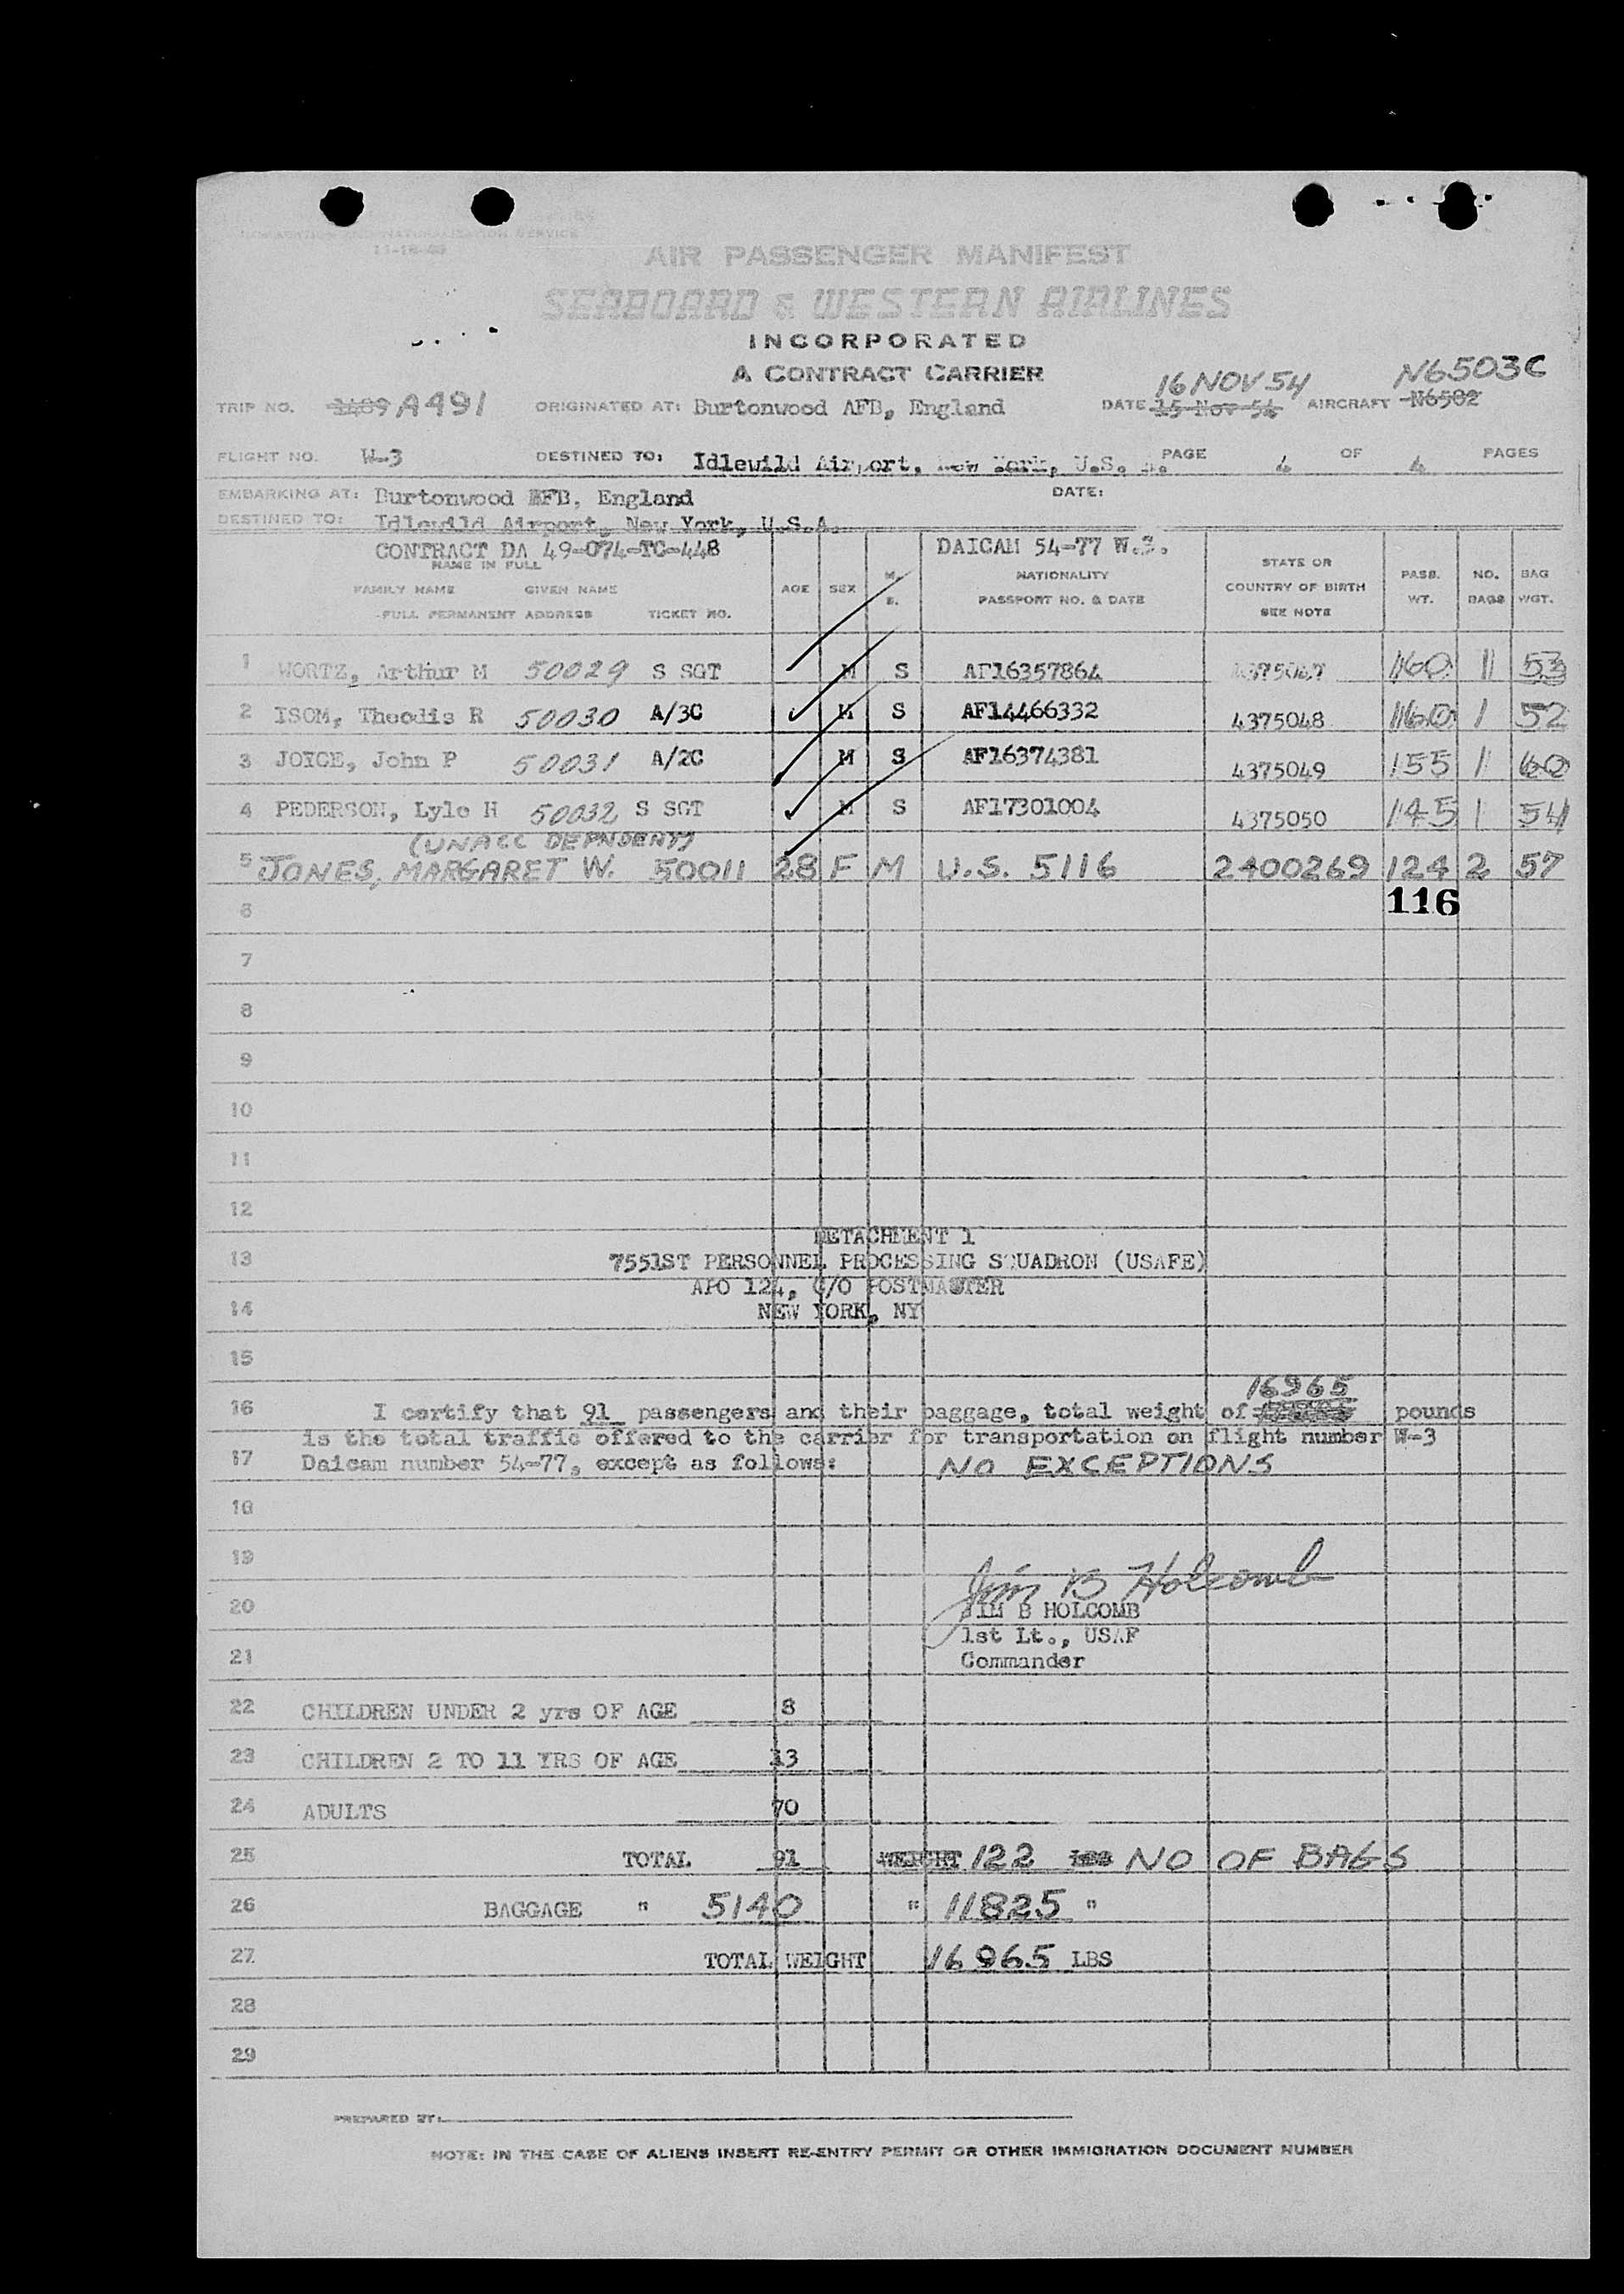 IMMIGRATION AND NATURALIZATION SERVICE
AIR PASSENGER MANIFEST
SEABOARD & WESTERN AIRLINES
INCORPORATED
A CONTRACT CARRIER
TRIP NO. A491 ORIGINATED AT: Burtonwood AFB, England DATE 16 NOV 54 15 Nov 54 AIRCRAFT N6503C N6502
FLIGHT NO. W-3 DESTINED TO: Idlewild Airport, New York, U.S. A. PAGE 4 OF 4 PAGES
EMBARKING AT: Burtonwood AFB, England DATE:
DESTINED TO: Idlewild Airport, New York, U.S.A.
CONTRACT DA 49-074-TC-448 DAICAM 54-77 W.3.
NAME IN FULL
FAMILY NAME GIVEN NAME
FULL PERMANENT ADDRESS TICKET NO.
AGE SEX M. S. NATIONALITY
PASSPORT NO. & DATE
STATE OR
COUNTRY OF BIRTH
SEE NOTE
PASS. WT. NO. BAGS BAG WGT.
1 WORTZ, Arthur M 50029 S SGT M S AF16357864 160 1 53
2 ISOM, Theodis R 50030 A/3C M S AF14466332 4375048 160 1 52
3 JOYCE, John P 50031 A/2C M S AF16374381 4375049 155 1 60
4 PEDERSON, Lyle H 50032 S SGT M S AF17301004 4375050 145 1 54
(UNACC DEPNDENT)
5 JONES, MARGARET W. 50011 28 F M U.S. 5116 2400269 124 2 57
6 116
7
8
9
10
11
12
DETACHMENT 1
13 7551ST PERSONNEL PROCESSING SQUADRON (USAFE)
APO 124, C/O POSTMASTER
14 NEW YORK, NY
15
16965
16 I certify that 91 passengers and their baggage, total weight of pounds
is the total traffic offered to the carrier for transportation on flight number W-3
17 Daicam number 54-77, except as follows: NO EXCEPTIONS
18
19
Jim B Holcomb
20 JIM B HOLCOMB
1st Lt., USAF
21 Commander
22 CHILDREN UNDER 2 yrs OF AGE 8
23 CHILDREN 2 TO 11 YRS OF AGE 13
24 ADULTS 70
25 TOTAL 91 WEIGHT 122 lbs NO OF BAGS
26 BAGGAGE " 5140 " 11825 "
27 TOTAL WEIGHT 16965 LBS
28
29
PREPARED BY:
NOTE: IN THE CASE OF ALIENS INSERT RE-ENTRY PERMIT OR OTHER IMMIGRATION DOCUMENT NUMBER